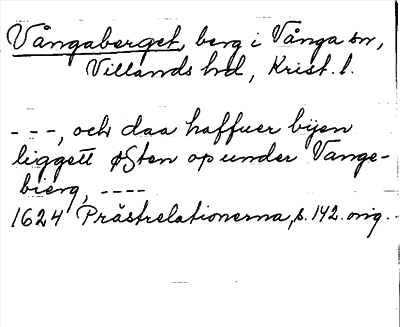 Vångaberget, berg i Vånga sn,
Villands hd, Krist. l.
---, och daa haffuer bijen
liggett østen op under Vange-
bierg, ----
1624 Prästrelationerna, s. 142. orig.